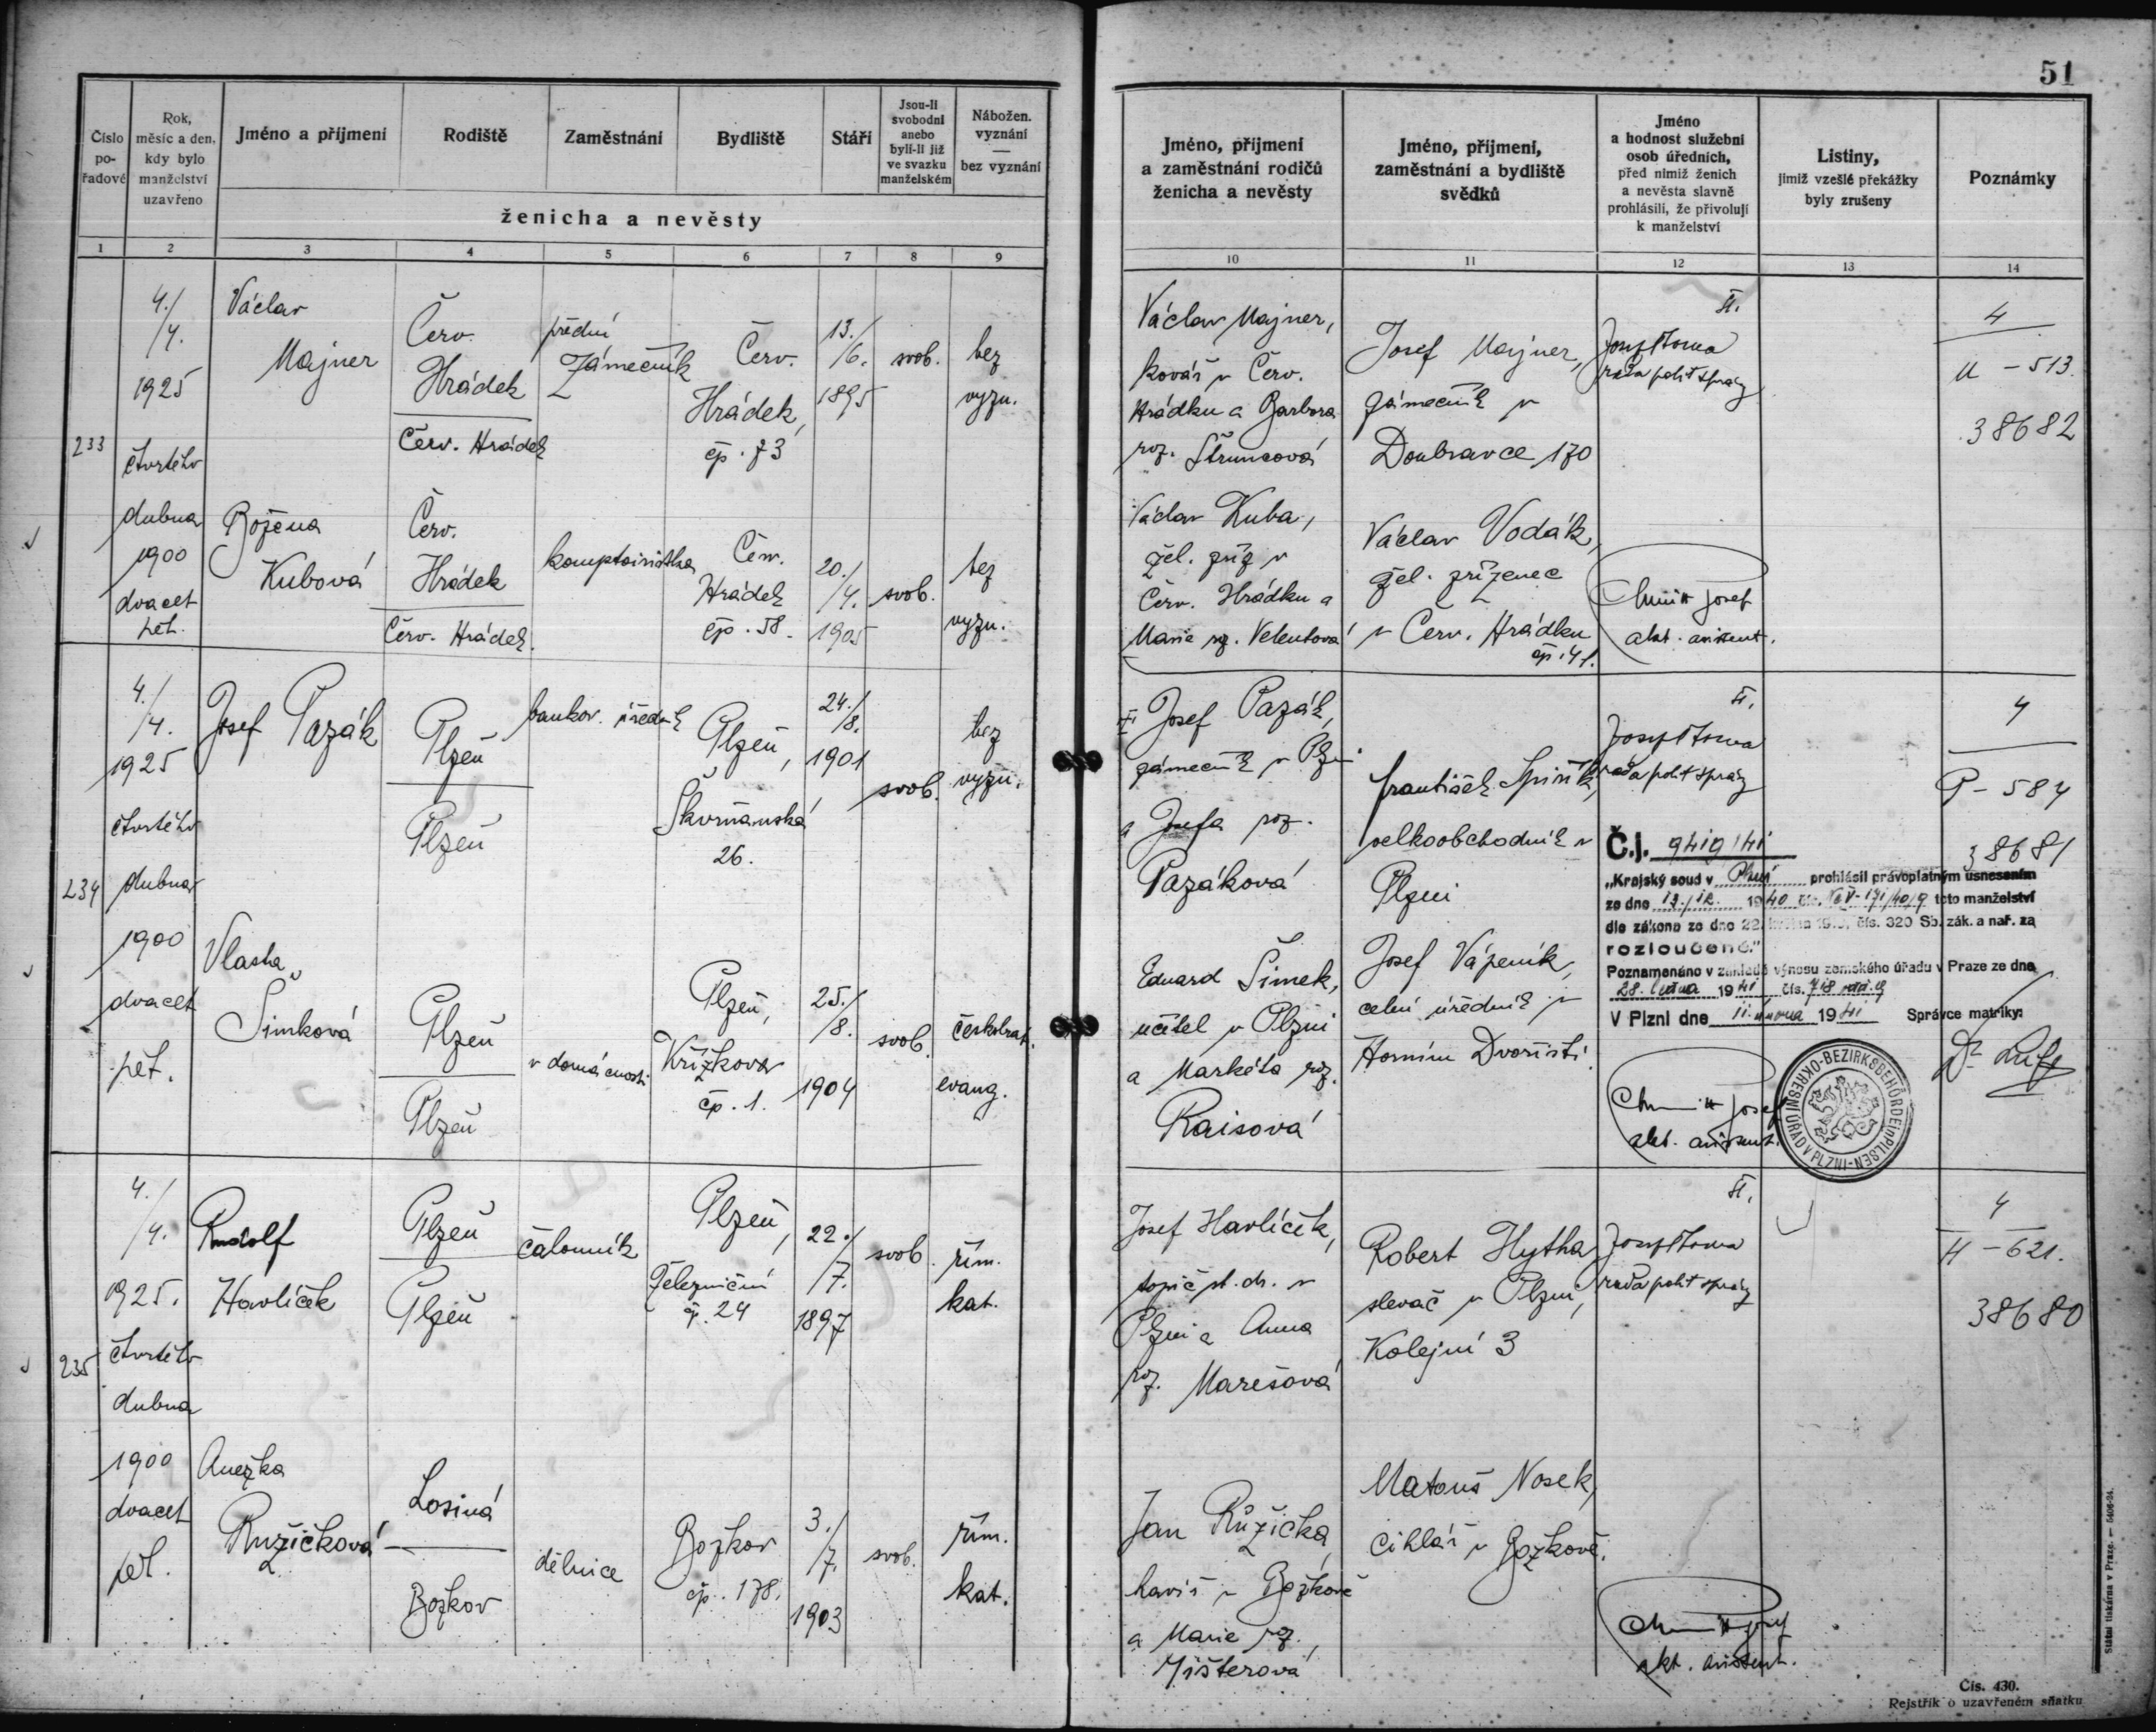 51
Číslo
po-
řadové
Rok,
měsíc a den,
kdy bylo
manželství
uzavřeno
Jméno a příjmení
Rodiště
Zaměstnání
Bydliště
Stáří
Jsou-li
svobodni
anebo
byli-li již
ve svazku
manželském
Nábožen.
vyznání
—
bez vyznání
ženicha a nevěsty
1 2 3 4 5 6 7 8 9
Jméno, příjmení
a zaměstnání rodičů
ženicha a nevěsty
Jméno, příjmení,
zaměstnání a bydliště
svědků
Jméno
a hodnost služební
osob úředních,
před nimiž ženich
a nevěsta slavně
prohlásili, že přivolují
k manželství
Listiny,
jimiž vzešlé překážky
byly zrušeny
Poznámky
10 11 12 13 14
233
4./
/4.
1925
čtvrtého
dubna
1900
dvacet
pět.
Václav
Majner
Červ.
Hrádek
Červ. Hrádek
přední
zámečník
Červ.
Hrádek,
čp. 73
13./
/6.
1895
svob.
bez
vyzn.
Božena
Kubová
Červ.
Hrádek
Červ. Hrádek.
komptoiristka
Červ.
Hrádek
čp. 58.
20./
/4.
1905
svob.
bez
vyzn.
Václav Majner,
kovář v Červ.
Hrádku a Barbora
roz. Štruncová
Josef Majner,
zámečník v
Doubravce 170
rada polit správy
4
M - 513.
38682
Václav Kuba,
žel. zříz v
Červ. Hrádku a
Marie roz. Velentová
Václav Vodák,
žel. zřízenec
v Červ. Hrádku
čp. 41.
Josef
akt. asistent.
234
4./
/4.
1925
čtvrtého
dubna
1900
dvacet
pět.
Josef Pazák
Plzeň
Plzeň
bankov. úředník
Plzeň,
Škvrňanská
26.
24./
/8.
1901
svob.
bez
vyzn.
Vlasta
Šimková
Plzeň
Plzeň
v domácnosti
Plzeň,
Křížkova
čp. 1.
25./
/8.
1904
svob.
českobrat.
evang.
Josef Pazák,
zámečník v Plzni
a Josefa roz.
Pazáková
František
velkoobchodník v
Plzni
rada polit správy
4
P - 584
38681
Č.j. 9419/41
„Krajský soud v Plzni prohlásil právoplatným usnesením
ze dne 13./12. 1940 čís. toto manželství
dle zákona ze dne 22. května 1919, čís. 320 Sb. zák. a nař. za
rozloučené."
Poznamenáno v základě výnosu zemského úřadu v Praze ze dne
28. ledna 1941 čís. 718
V Plzni dne 11. února 1941 Správce matriky:
Eduard Šimek,
učitel v Plzni
a Markéta roz.
Raisová
Josef Vápeník,
celní úředník v
Horním Dvořišti.
Josef
akt. asistent.
OKRESNÍ ÚŘAD V PLZNI - BEZIRKSBEHÖRDE in PILSEN
235
4./
/4.
1925.
čtvrtého
dubna
1900
dvacet
pět.
Rudolf
Havlíček
Plzeň
Plzeň
čalouník
Plzeň,
Železniční
čp. 24
22./
/7.
1897
svob.
řím.
kat.
Anežka
Růžičková
Losiná
Božkov
dělnice
Božkov
čp. 178.
3./
/7.
1903
svob.
řím.
kat.
Josef Havlíček,
topič st. dr. v
Plzni a Anna
roz. Marešová
Robert Hytha,
slevač v Plzni,
Kolejní 3
rada polit správy
4
H - 621.
38680
Jan Růžička,
havíř v Božkově
a Marie roz.
Mišterová
Matouš Nosek,
cihlář v Božkově.
akt. asistent.
Státní tiskárna v Praze. — 5406-24.
Čís. 430.
Rejstřík o uzavřeném sňatku